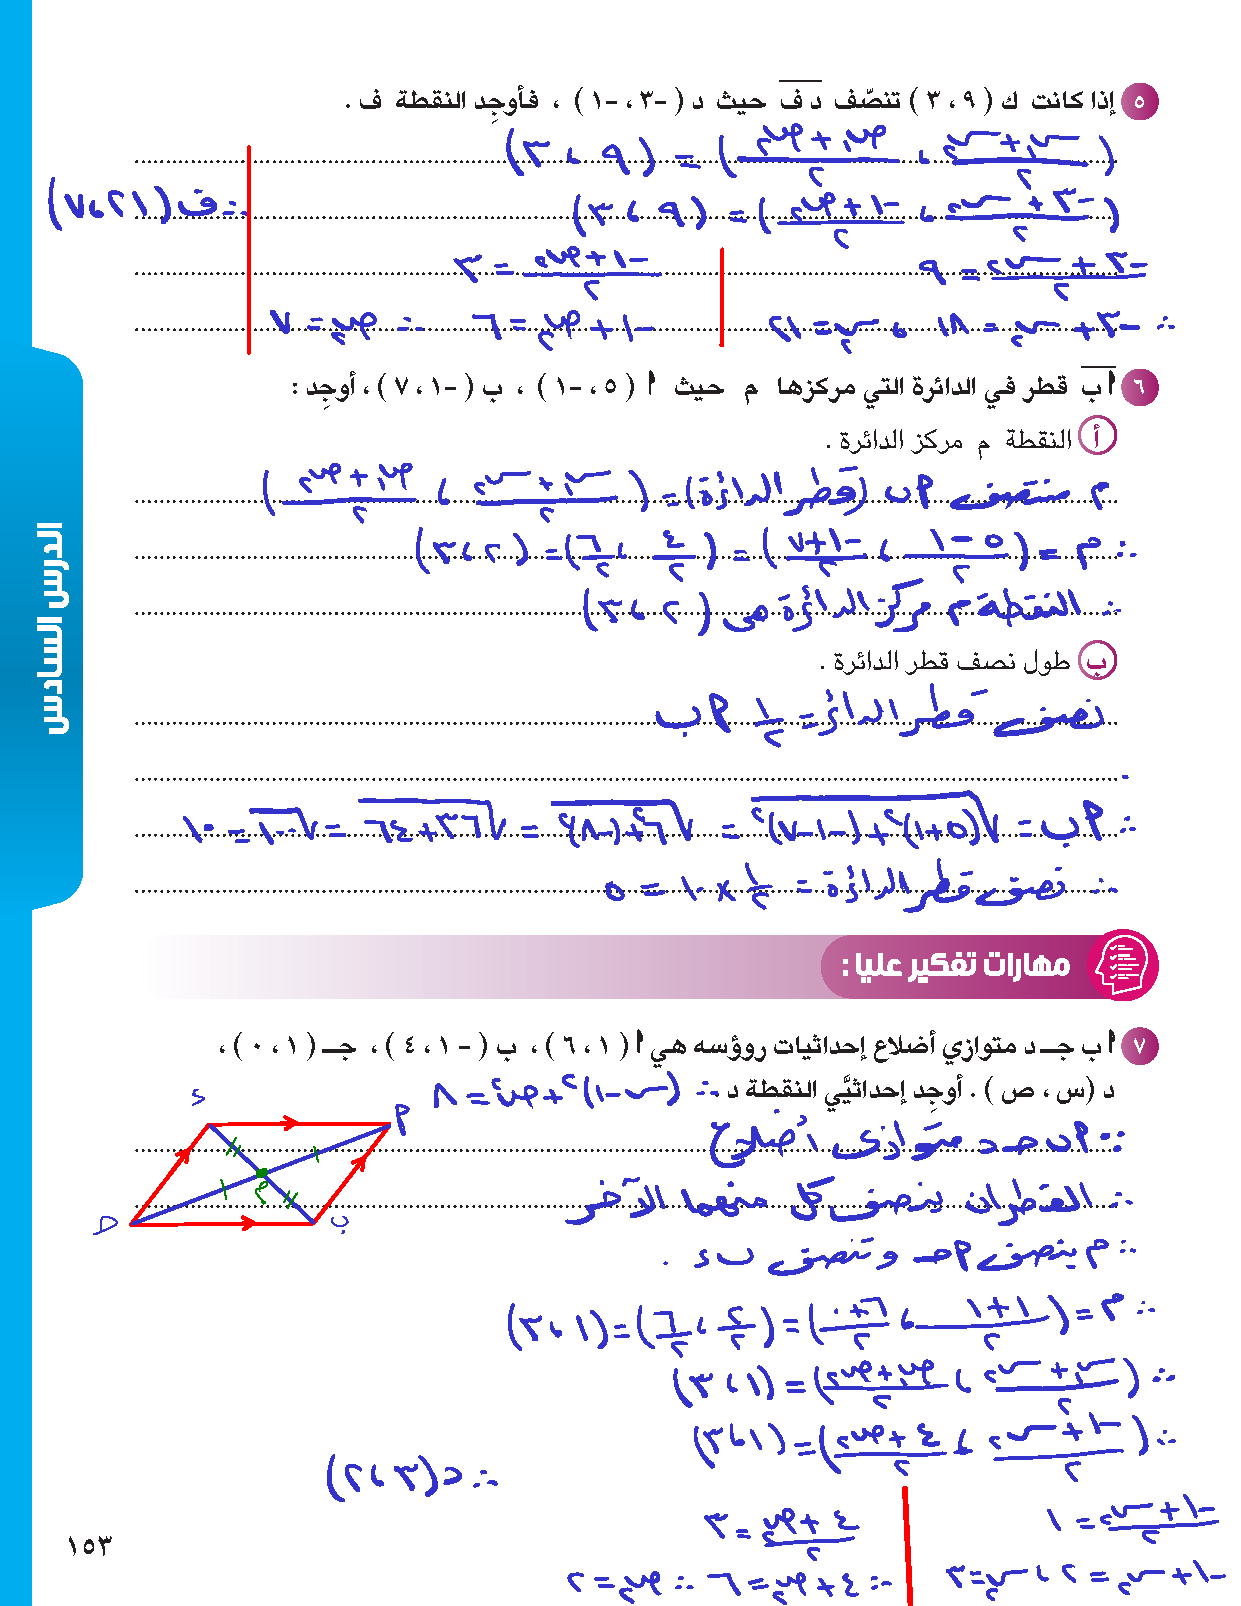 ٥ إذا كانت ك ( ٩ ، ٣ ) تنصّف د ف حيث د ( -٣ ، -١ ) ، فأوجِد النقطة ف .
( (س١ + س٢)/٢ ، (ص١ + ص٢)/٢ ) = ( ٩ ، ٣ )
( (-٣ + س٢)/٢ ، (-١ + ص٢)/٢ ) = ( ٩ ، ٣ )
∴ ف (٢١ ، ٧)
(-٣ + س٢)/٢ = ٩
(-١ + ص٢)/٢ = ٣
∴ -٣ + س٢ = ١٨ ، س٢ = ٢١
-١ + ص٢ = ٦ ∴ ص٢ = ٧
٦ أ ب قطر في الدائرة التي مركزها م حيث أ ( ٥ ، -١ ) ، ب ( -١ ، ٧ ) ، أوجِد :
أ النقطة م مركز الدائرة .
م منتصف أب (قطر الدائرة) = ( (س١ + س٢)/٢ ، (ص١ + ص٢)/٢ )
∴ م = ( (٥ - ١)/٢ ، (-١ + ٧)/٢ ) = ( ٤/٢ ، ٦/٢ ) = ( ٢ ، ٣ )
∴ النقطة م مركز الدائرة هى ( ٢ ، ٣ )
ب طول نصف قطر الدائرة .
نصف قطر الدائر = ١/٢ أب
∴ أب = √((٥+١)² + (-١-٧)²) = √(٦² + (-٨)²) = √(٣٦+٦٤) = √١٠٠ = ١٠
∴ نصف قطر الدائرة = ١/٢ × ١٠ = ٥
مهارات تفكير عليا :
٧ أ ب جـ د متوازي أضلاع إحداثيات روؤسه هي أ ( ١ ، ٦ ) ، ب ( -١ ، ٤ ) ، جـ ( ١ ، ٠ ) ،
د (س ، ص ) . أوجِد إحداثيَّي النقطة د
∴ (س-١)² + ص² = ٨
∵ أب حـ د متوازى أضلاع
∴ القطران ينصف كل منهما الآخر
∴ م ينصف أحـ وتنصف ب ء .
∴ م = ( (١+١)/٢ ، (٦+٠)/٢ ) = ( ٢/٢ ، ٦/٢ ) = ( ١ ، ٣ )
∴ ( (س١ + س٢)/٢ ، (ص١ + ص٢)/٢ ) = ( ١ ، ٣ )
∴ ( (-١ + س٢)/٢ ، (٤ + ص٢)/٢ ) = ( ١ ، ٣ )
∴ د (٣ ، ٢)
(-١ + س٢)/٢ = ١
(٤ + ص٢)/٢ = ٣
-١ + س٢ = ٢ ، س٢ = ٣
∴ ٤ + ص٢ = ٦ ∴ ص٢ = ٢
ء
أ
م
حـ
ب
الدرس السادس
١٥٣